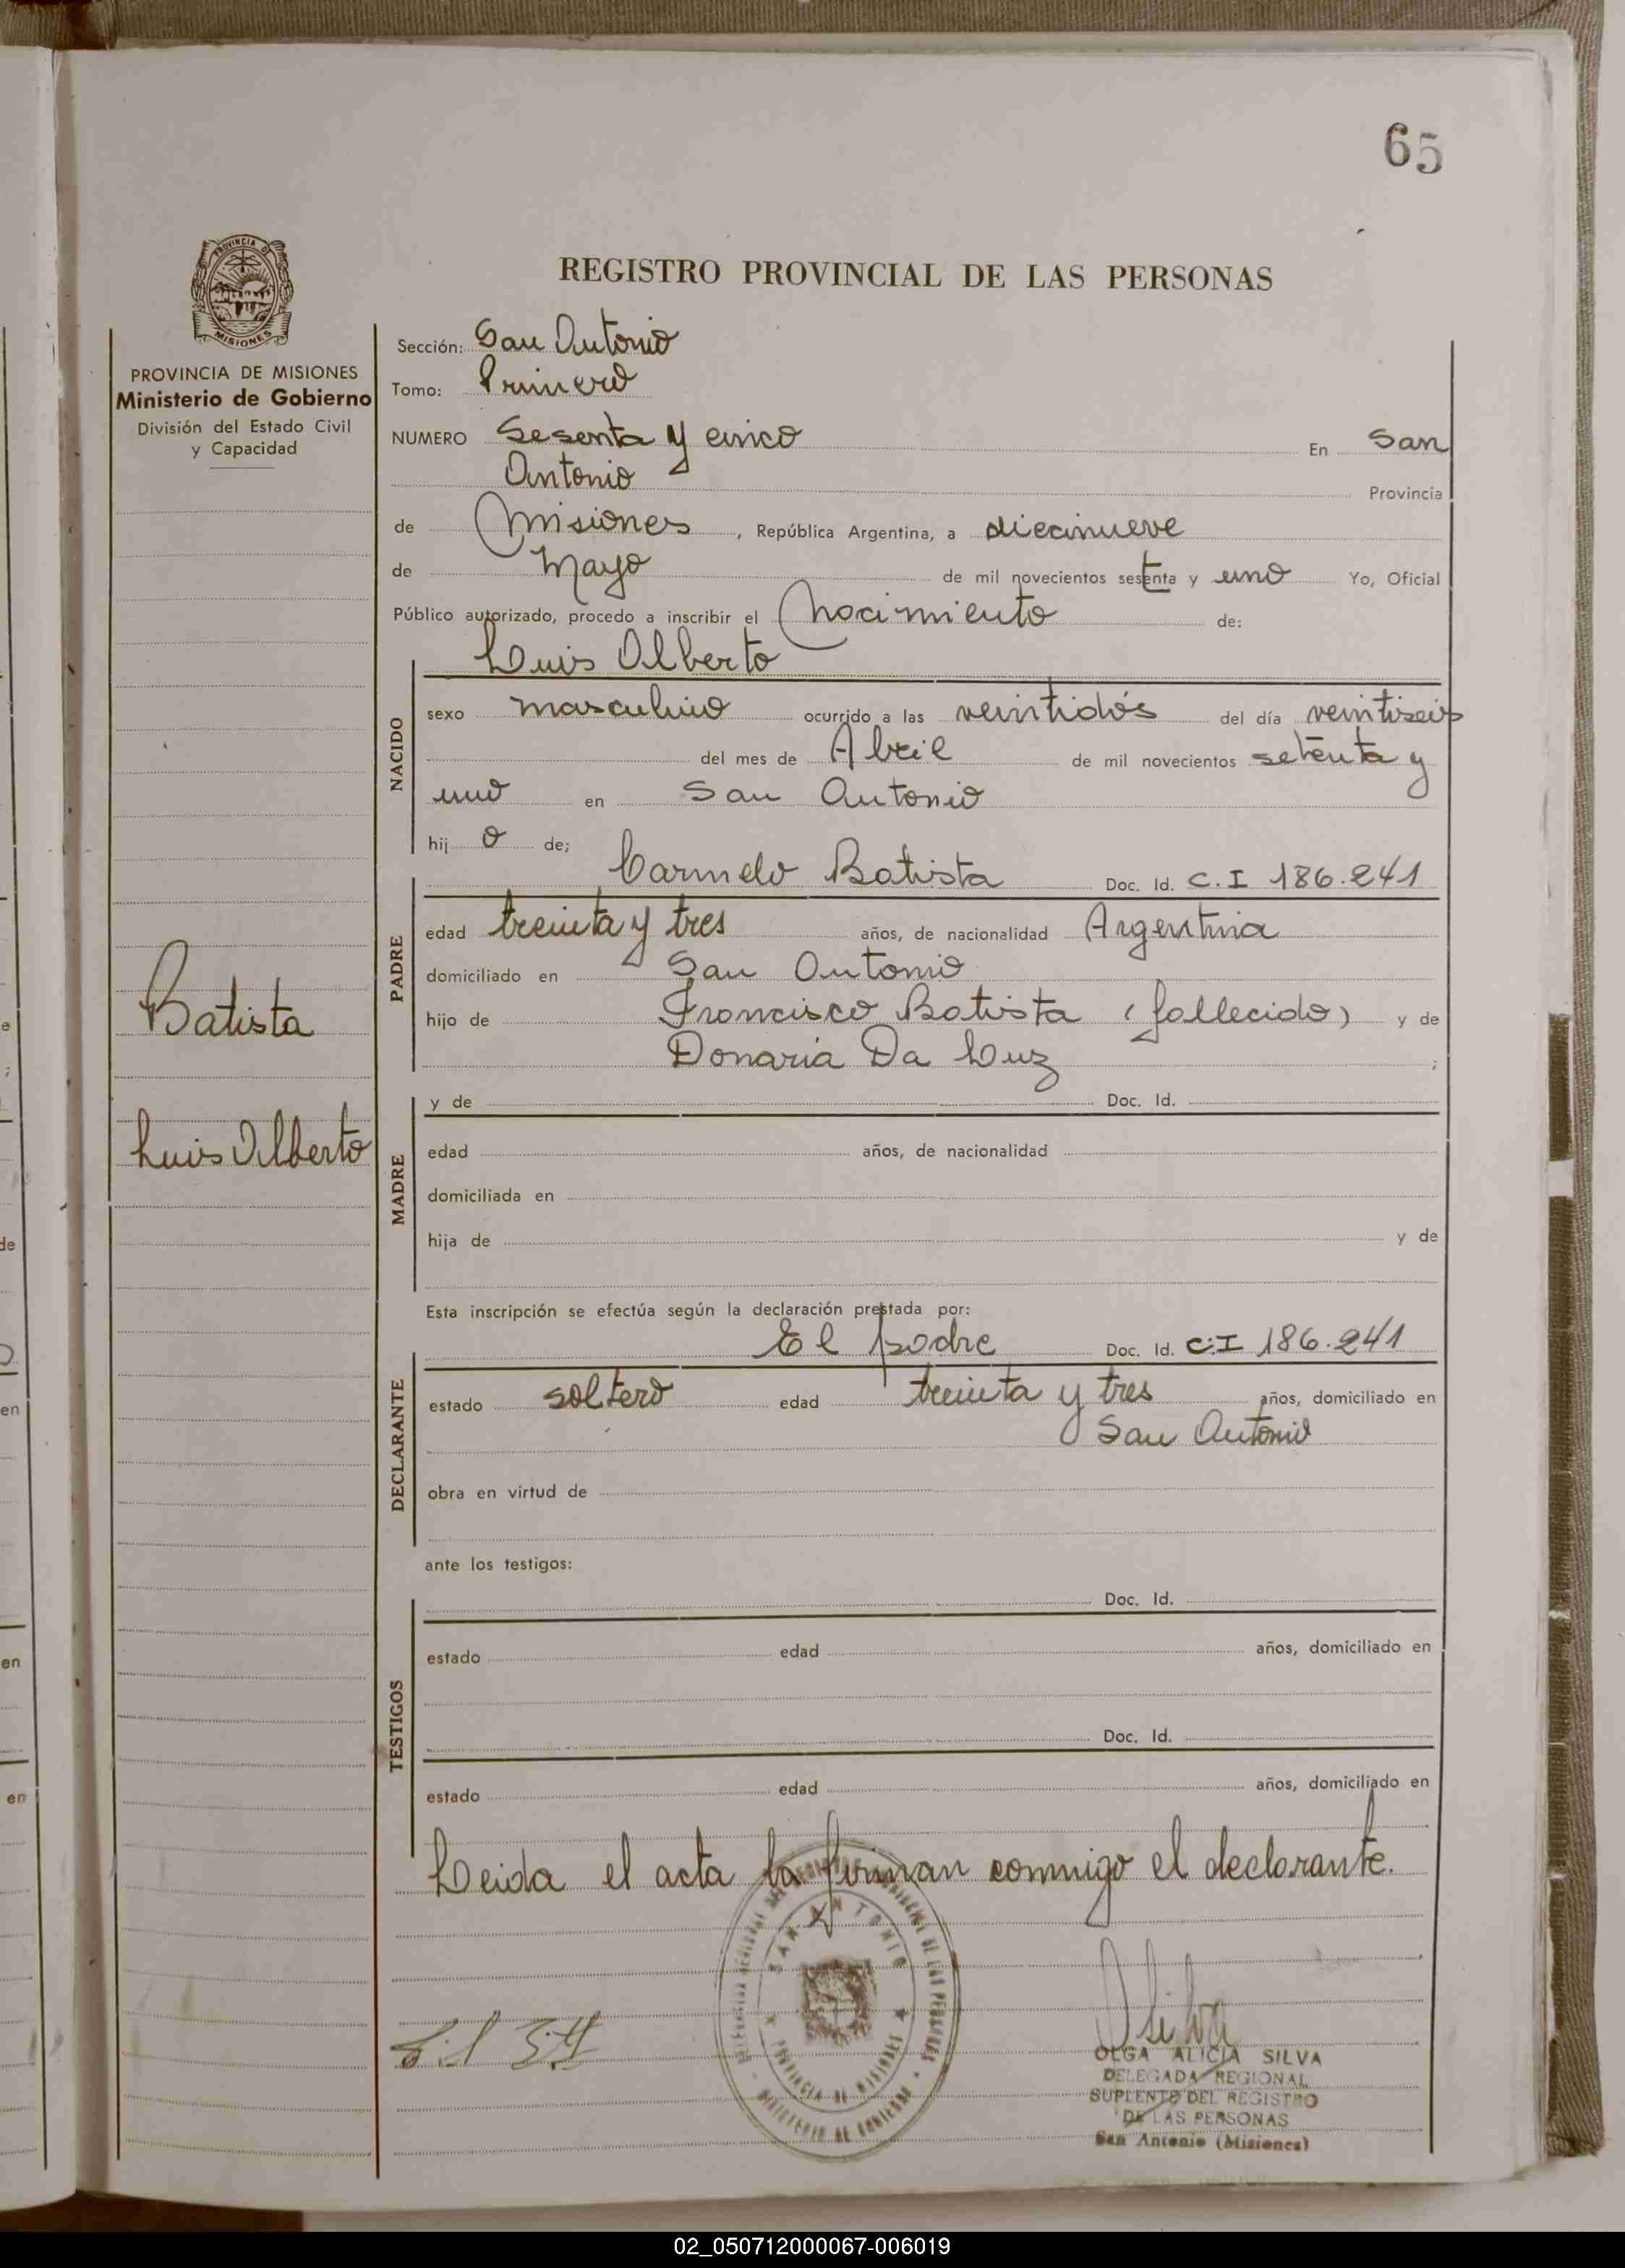 65
REGISTRO PROVINCIAL DE LAS PERSONAS
PROVINCIA DE MISIONES
MISIONES
PROVINCIA DE MISIONES
Ministerio de Gobierno
División del Estado Civil
y Capacidad
Batista
Luis Alberto
Sección: San Antonio
Tomo: Primero
NUMERO Sesenta y cinco En San
Antonio Provincia
de Misiones, República Argentina, a diecinueve
de Mayo de mil novecientos setenta y uno Yo, Oficial
Público autorizado, procedo a inscribir el Nacimiento de:
Luis Alberto
NACIDO
sexo masculino ocurrido a las veintidós del día veintiseis
del mes de Abril de mil novecientos setenta y
uno en San Antonio
hij o de;
Carmelo Batista Doc. Id. C.I 186.241
PADRE
edad treinta y tres años, de nacionalidad Argentina
domiciliado en San Antonio
hijo de Francisco Batista (fallecido) y de
Donaria Da Luz ;
y de Doc. Id.
MADRE
edad años, de nacionalidad
domiciliada en
hija de y de
Esta inscripción se efectúa según la declaración prestada por:
El padre Doc. Id. C.I 186.241
DECLARANTE
estado soltero edad treinta y tres años, domiciliado en
San Antonio
obra en virtud de
ante los testigos:
Doc. Id.
TESTIGOS
estado edad años, domiciliado en
Doc. Id.
estado edad años, domiciliado en
Leida el acta la firman conmigo el declarante.
SAN ANTONIO
PROVINCIA DE MISIONES
MINISTERIO DE GOBIERNO
OSilva
OLGA ALICIA SILVA
DELEGADA REGIONAL
SUPLENTE DEL REGISTRO
DE LAS PERSONAS
San Antonio (Misiones)
02_050712000067-006019